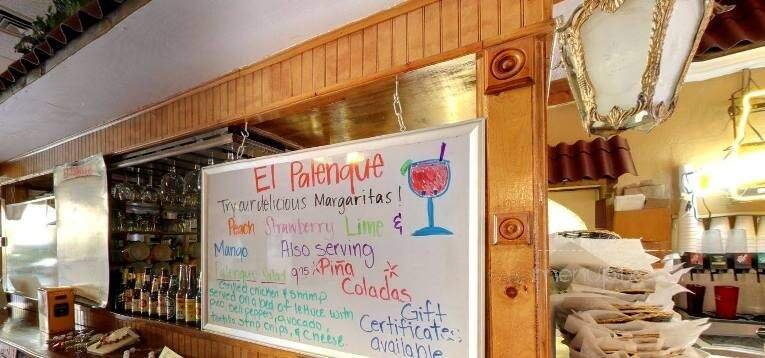 El Palenque
Try our delicious Margaritas!
Peach Strawberry Lime &
Mango Also serving
Palenque Salad 9.75 *Piña
Coladas *
Grilled chicken & shrimp
served on a bed of lettuce with
pico, bell peppers, avocado,
tortilla strip chips, & cheese.
Gift
Certificates
available